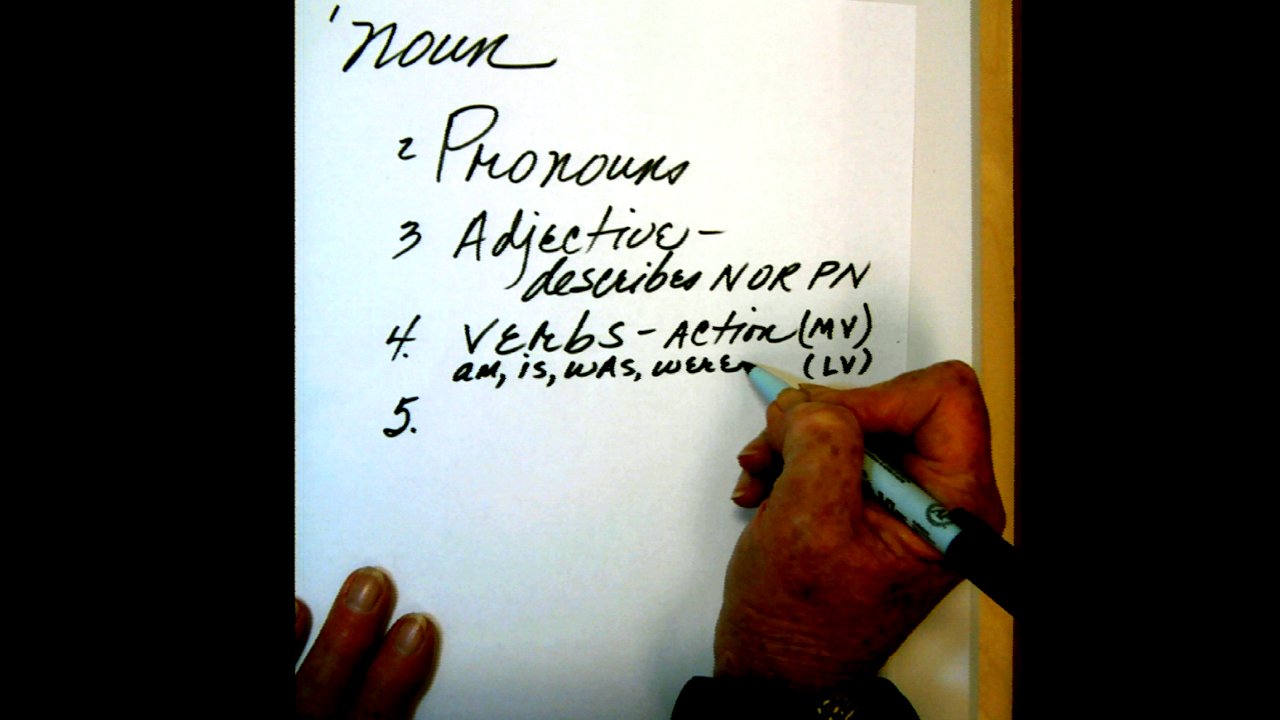 1 noun
2 Pronouns
3 Adjective -
describes N OR PN
4. Verbs - Action (MV)
am, is, was, were (LV)
5.